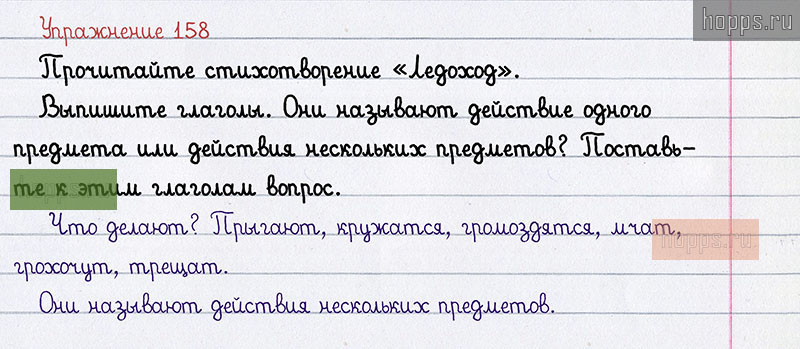 Упражнение 158
hopps.ru
Прочитайте стихотворение «Ледоход».
Выпишите глаголы. Они называют действие одного
предмета или действия нескольких предметов? Поставь-
те к этим глаголам вопрос.
Что делают? Прыгают, кружатся, громоздятся, мчат,
hopps.ru
грохочут, трещат.
Они называют действия нескольких предметов.